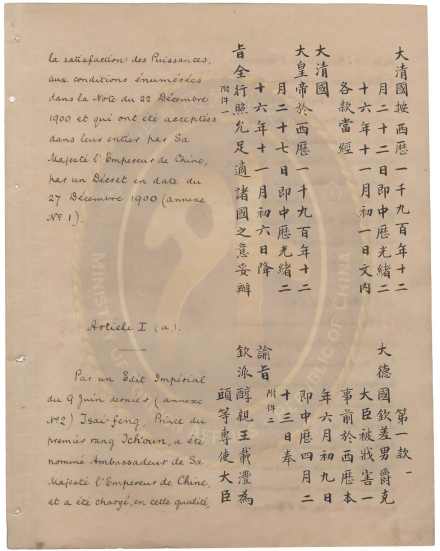 la satisfaction des Puissances,
aux conditions énumérées
dans la Note du 22 Décembre
1900 et qui ont été acceptées
dans leur entier par Sa
Majesté l'Empereur de Chine,
par un Décret en date du
27 Décembre 1900 (annexe
No 1).
Article I (a).
Par un Edit Impérial
du 9 Juin dernier (annexe
No 2) Tsai-feng, Prince du
premier rang Tch'oun, a été
nommé Ambassadeur de Sa
Majesté l'Empereur de Chine,
et a été chargé, en cette qualité
大清國按西歷一千九百年十二
月二十二日即中歷光緒二
十六年十一月初一日文內
各款當經
大清國
大皇帝於西歷一千九百年十二
月二十七日即中歷光緒二
十六年十一月初六日降
旨全行照允足適諸國之意妥辦
附件
第一款
大德國欽差男爵克
大臣被戕害一
事前於西歷本
年六月初九日
即中歷四月二
十三日奉
諭旨附件二
欽派醇親王載灃為
頭等專使大臣